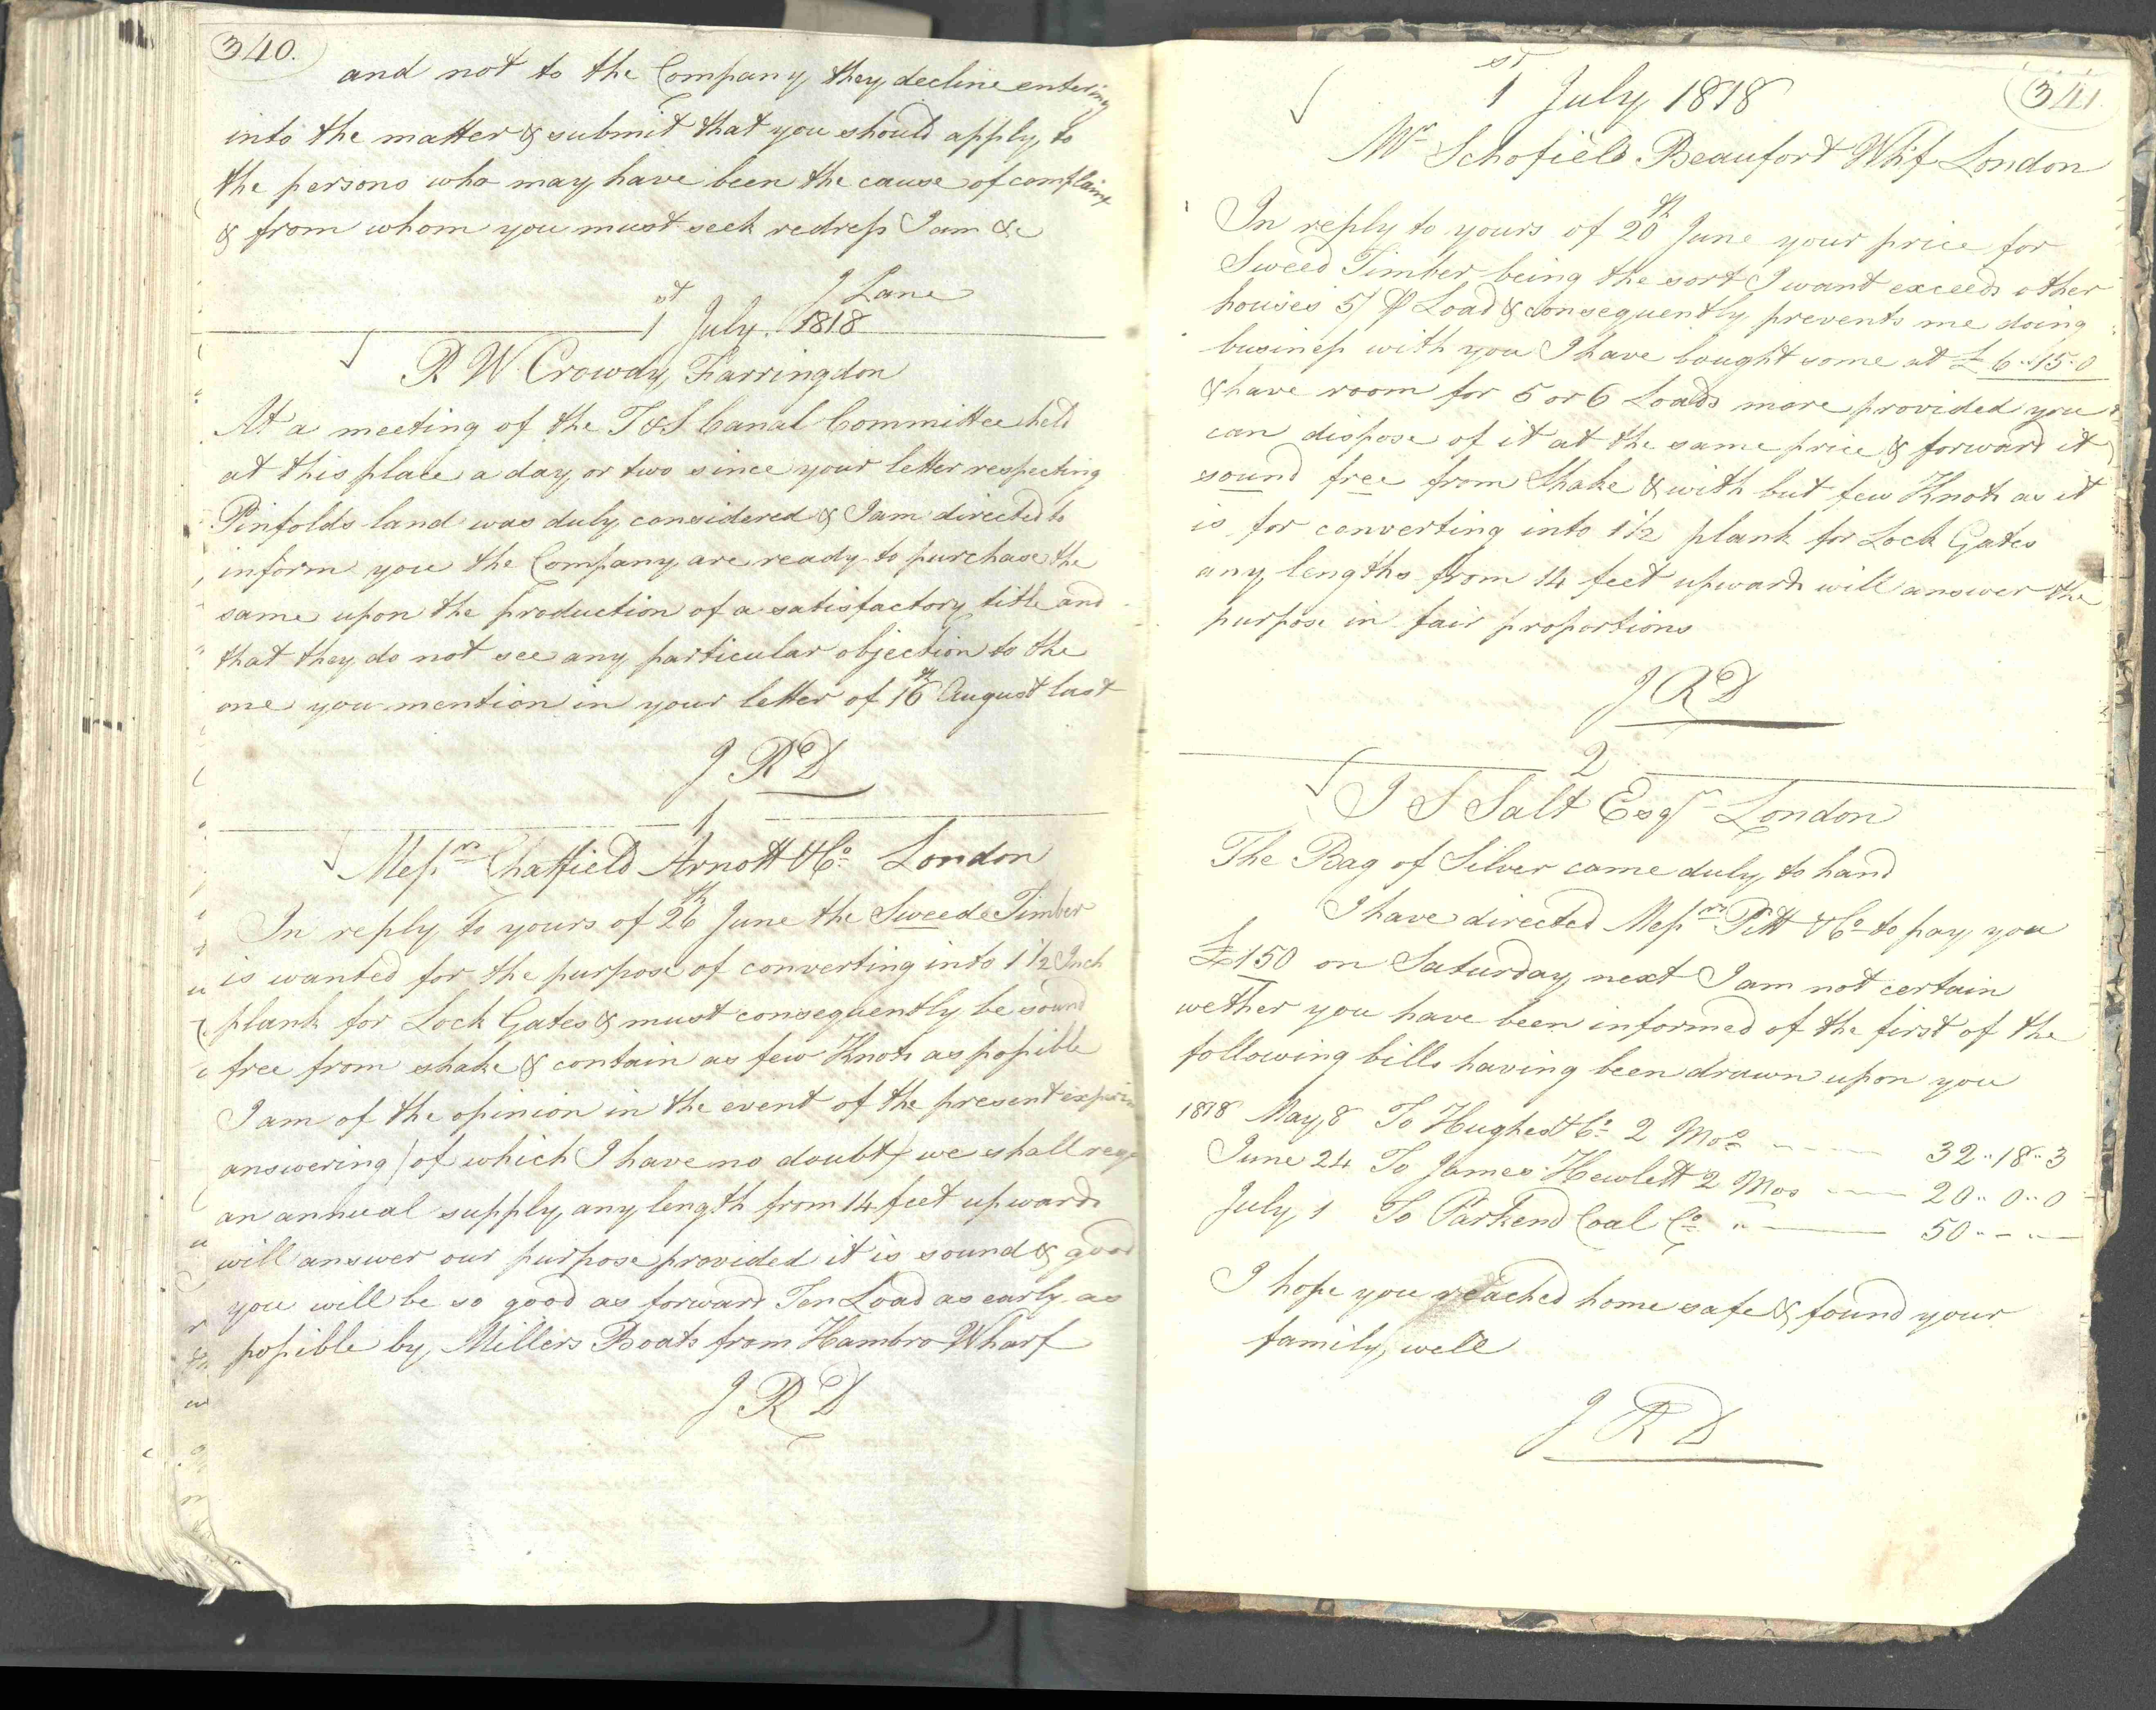 340.
and not to the Company they decline entering
into the matter & submit that you should apply to
the persons who may have been the cause of complaint
& from whom you must seek redress I am &c
J Lane
1st July 1818
R W Crowdy Farringdon
At a meeting of the T & S Canal Committee held
at this place a day or two since your letter respecting
Pinfolds land was duly considered & I am directed to
inform you the Company are ready to purchase the
same upon the production of a satisfactory title and
that they do not see any particular objection to the
one you mention in your letter of 16th August last
J R D
1
Messrs Chatfield Arnott & Co London
In reply to yours of 26th June the Sweede Timber
is wanted for the purpose of converting into 1 1/2 Inch
plank for Lock Gates & must consequently be sound
free from shake & contain as few Knots as possible
I am of the opinion in the event of the present
answering (of which I have no doubt) we shall
an annual supply any length from 14 feet upwards
will answer our purpose provided it is sound & good
you will be so good as forward Ten Load as early as
possible by Millers Boats from Hambro Wharf
J R D
341
1st July 1818
Mr Schofield Beaufort Whf London
In reply to yours of 20th June your price for
Sweed Timber being the sort I want exceeds other
houses 5/ ⅌ Load & consequently prevents me doing
business with you I have bought some at £6..15..0
& have room for 5 or 6 Loads more provided you
can dispose of it at the same price & forward it
sound free from Shake & with but few Knots as it
is for converting into 1 1/2 plank for Lock Gates
any lengths from 14 feet upwards will answer the
purpose in fair proportions
J R D
2
J S Salt Esqr London
The Bag of Silver came duly to hand
I have directed Messrs Pitt & Co to pay you
£150 on Saturday next I am not certain
wether you have been informed of the first of the
following bills having been drawn upon you
1818 May 8 To Hughes & Co 2 Mos ---- 32..18..3
June 24 To James Hewlett 2 Mos --- 20..0..0
July 1 To Parkend Coal Co " --- 50..-..-
I hope you reached home safe & found your
family well
J R D